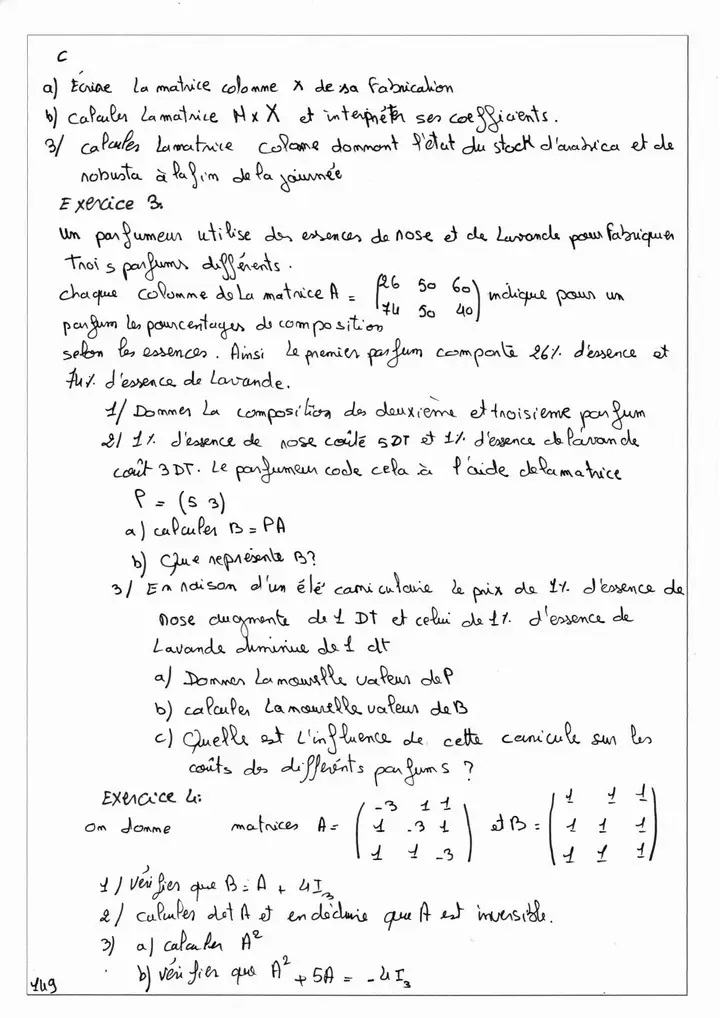 C
a) Ecrire la matrice colonne X de sa fabrication
b) calculer la matrice M x X et interpréter ses coefficients.
3/ calculer la matrice colonne donnant l'état du stock d'arabica et de
robusta à la fin de la journée
Exercice 3:
Un parfumeur utilise des essences de rose et de Lavande pour fabriquer
Trois parfums différents.
chaque colonne de la matrice A = (26 50 60) indique pour un
(74 50 40)
parfum les pourcentages de composition
selon les essences. Ainsi le premier parfum comporte 26% d'essence et
74% d'essence de Lavande.
1/ Donner la composition des deuxième et troisieme parfum
2/ 1% d'essence de rose coûte 5DT et 1% d'essence de lavande
coût 3DT. Le parfumeur code cela à l'aide de la matrice
P = (5 3)
a) calculer B = PA
b) Que représente B?
3/ En raison d'un élé caniculaire le prix de 1% d'essence de
rose augmente de 1 DT et celui de 1% d'essence de
Lavande diminue de 1 dt
a) Donner la nouvelle valeur de P
b) calculer la nouvelle valeur de B
c) Quelle est l'influence de cette canicule sur les
coûts des différents parfums ?
Exercice 4:
On donne matrices A = (-3 1 1) et B = (1 1 1)
(1 -3 1) (1 1 1)
(1 1 -3) (1 1 1)
1/ Vérifier que B = A + 4I₃
2/ calculer det A et en déduire que A est inversible.
3) a) calculer A²
b) vérifier que A² + 5A = -4I₃
149